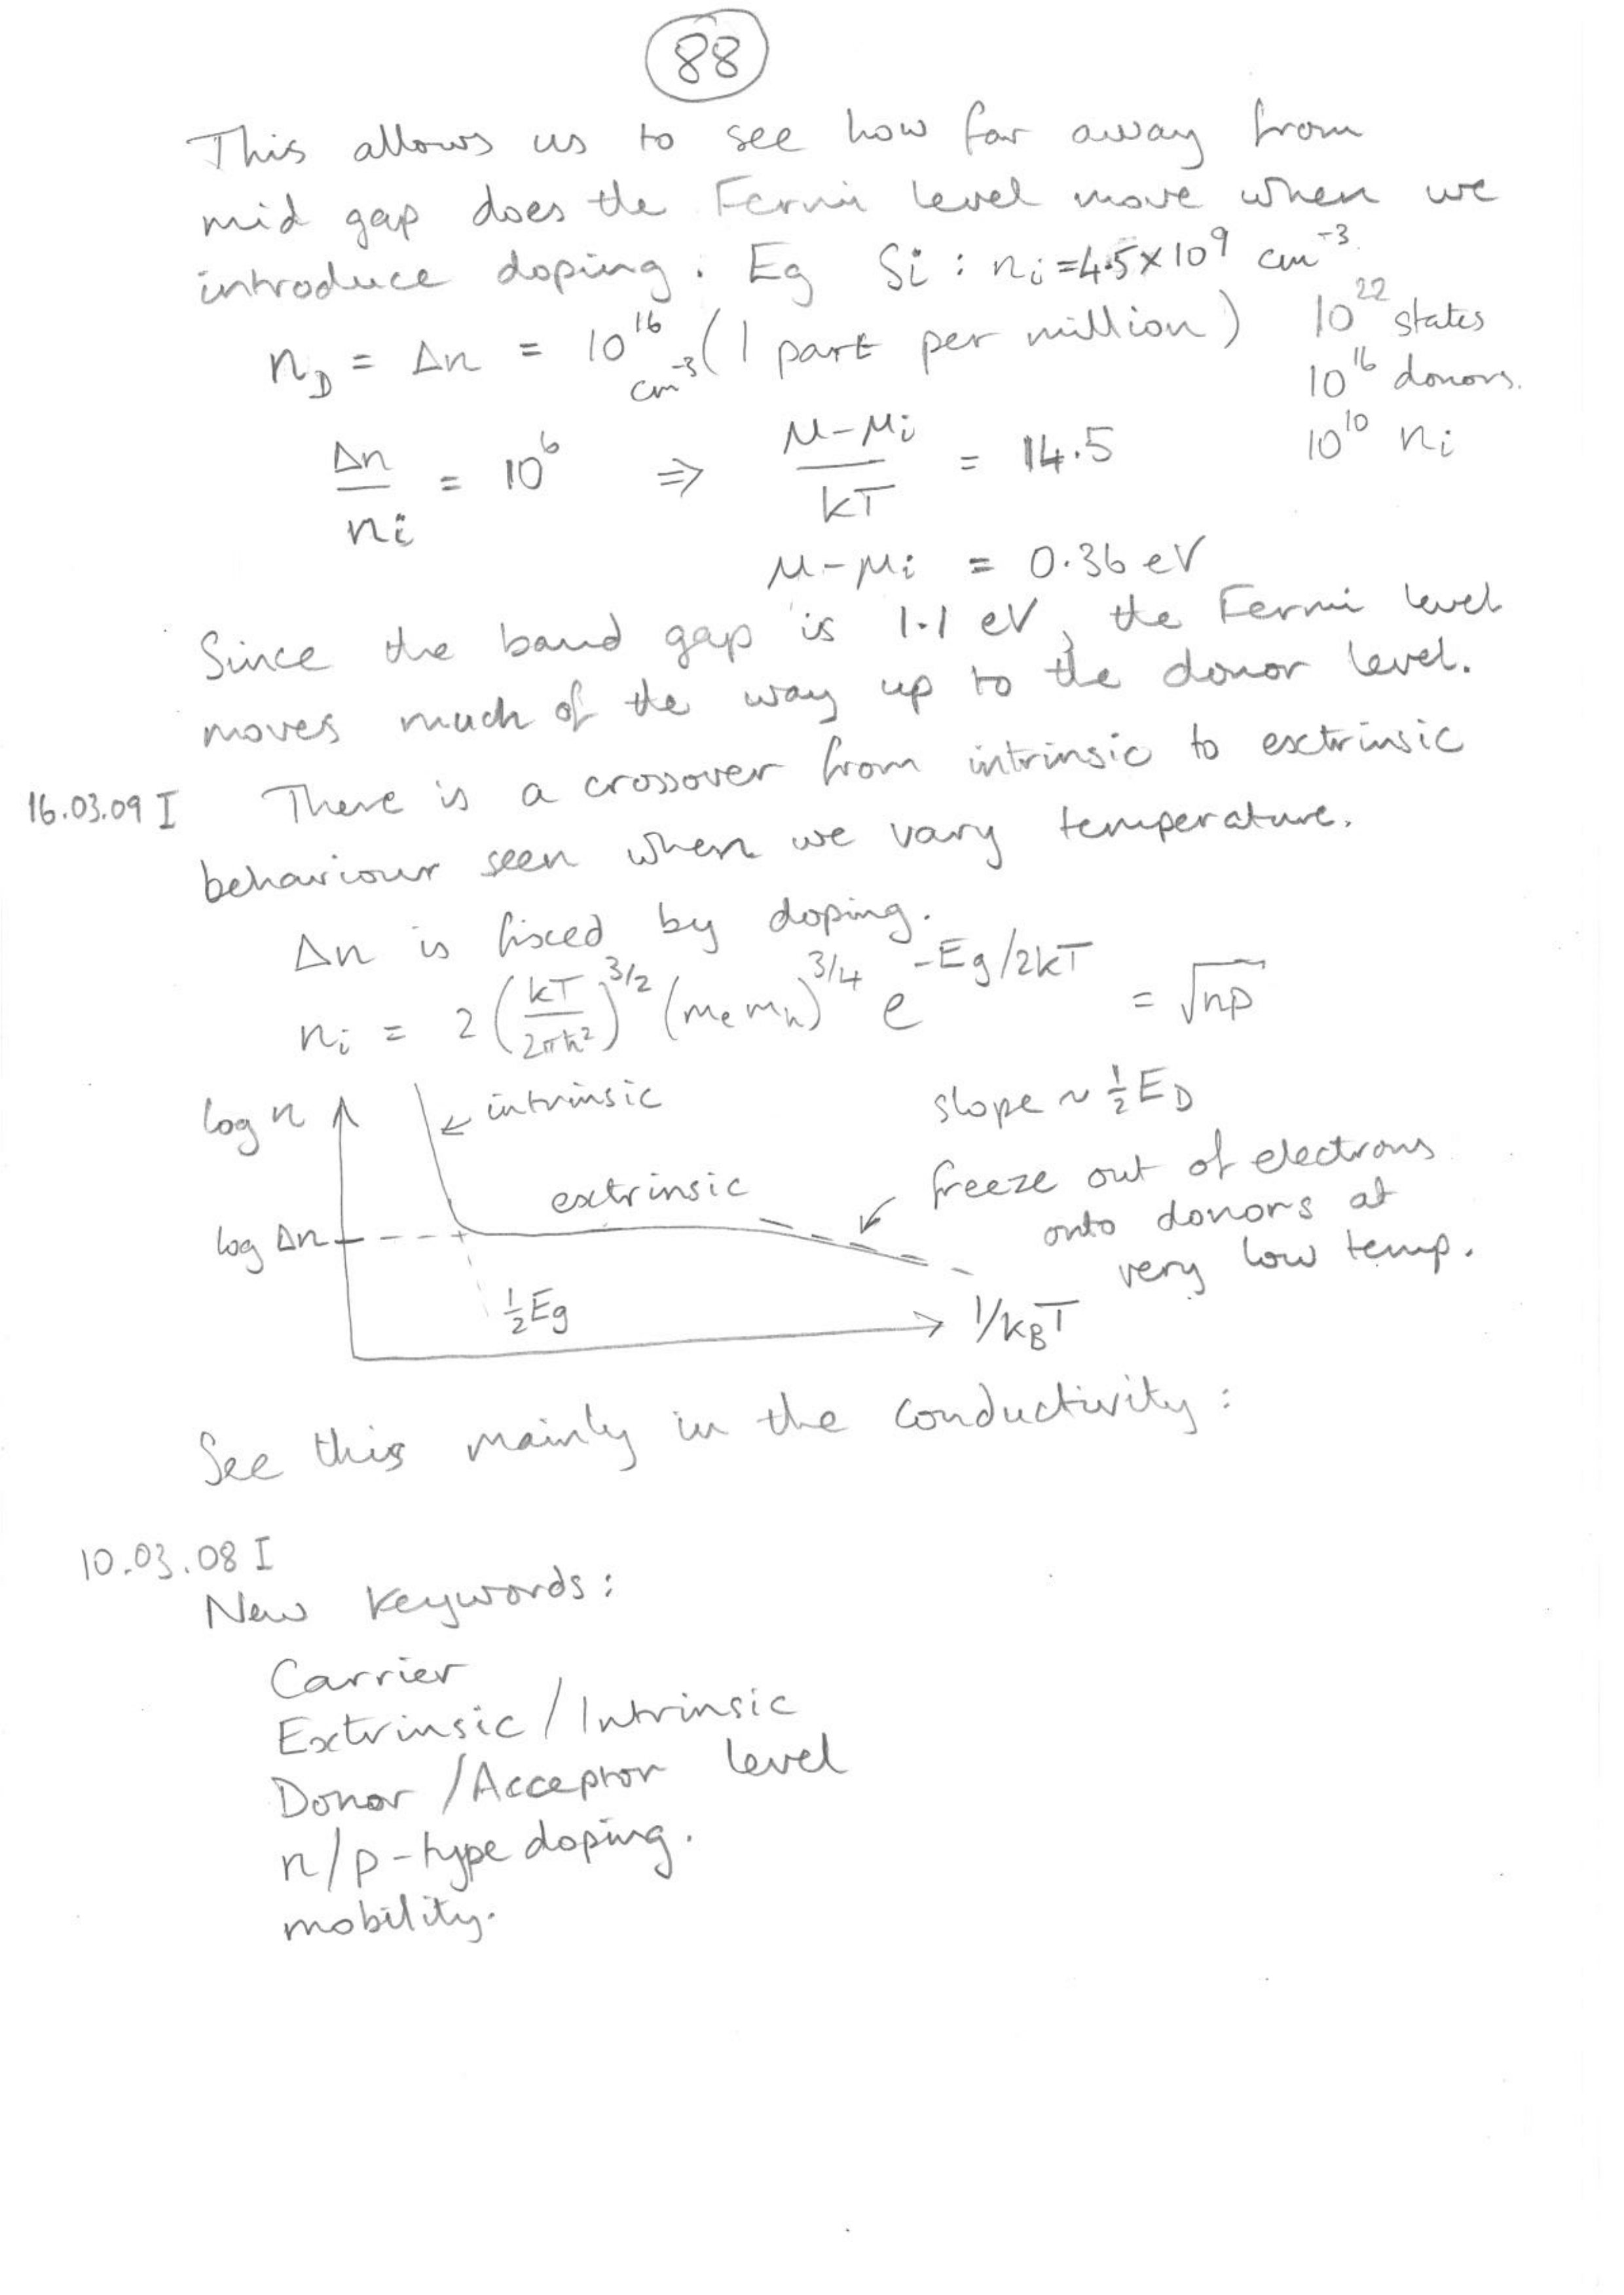 88
This allows us to see how far away from
mid gap does the Fermi level move when we
introduce doping. Eg Si : nᵢ = 4.5×10⁹ cm⁻³.
n_D = Δn = 10¹⁶ cm⁻³ (1 part per million) 10²² states
10¹⁶ donors.
Δn/nᵢ = 10⁶ ⇒ (μ-μᵢ)/kT = 14.5 10¹⁰ nᵢ
μ-μᵢ = 0.36 eV
Since the band gap is 1.1 eV, the Fermi level
moves much of the way up to the donor level.
16.03.09 I There is a crossover from intrinsic to extrinsic
behaviour seen when we vary temperature.
Δn is fixed by doping.
nᵢ = 2 (kT/2πħ²)^3/2 (mₑ mₕ)^3/4 e^-Eg/2kT = √np
log n intrinsic slope ~ ½E_D
extrinsic freeze out of electrons
log Δn onto donors at
very low temp.
½Eg 1/k_BT
See this mainly in the conductivity :
10.03.08 I
New keywords :
Carrier
Extrinsic / Intrinsic
Donor / Acceptor level
n/p-type doping.
mobility.